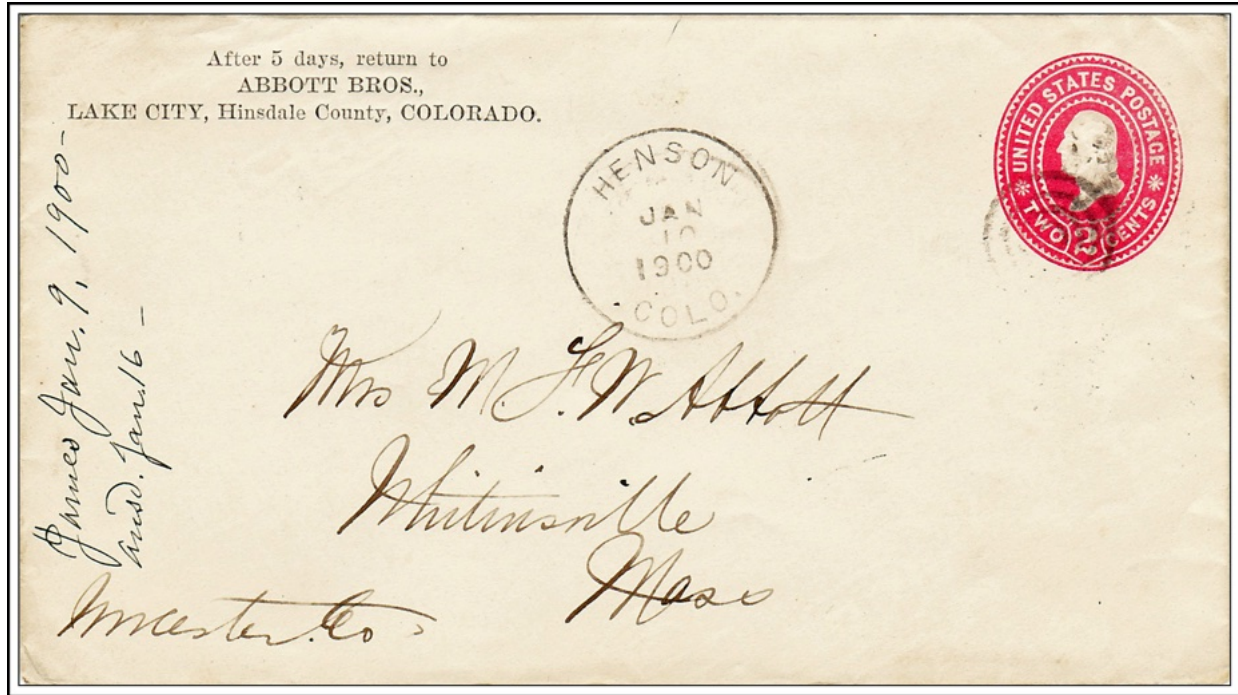 After 5 days, return to
ABBOTT BROS.,
LAKE CITY, Hinsdale County, COLORADO.
UNITED STATES POSTAGE
TWO 2 CENTS
HENSON
JAN
10
1900
COLO.
James Jan. 9, 1900-
ansd. Jan. 16 -
Mrs M. F. W. Abbott
Whitinsville
Mass
Worcester. Co